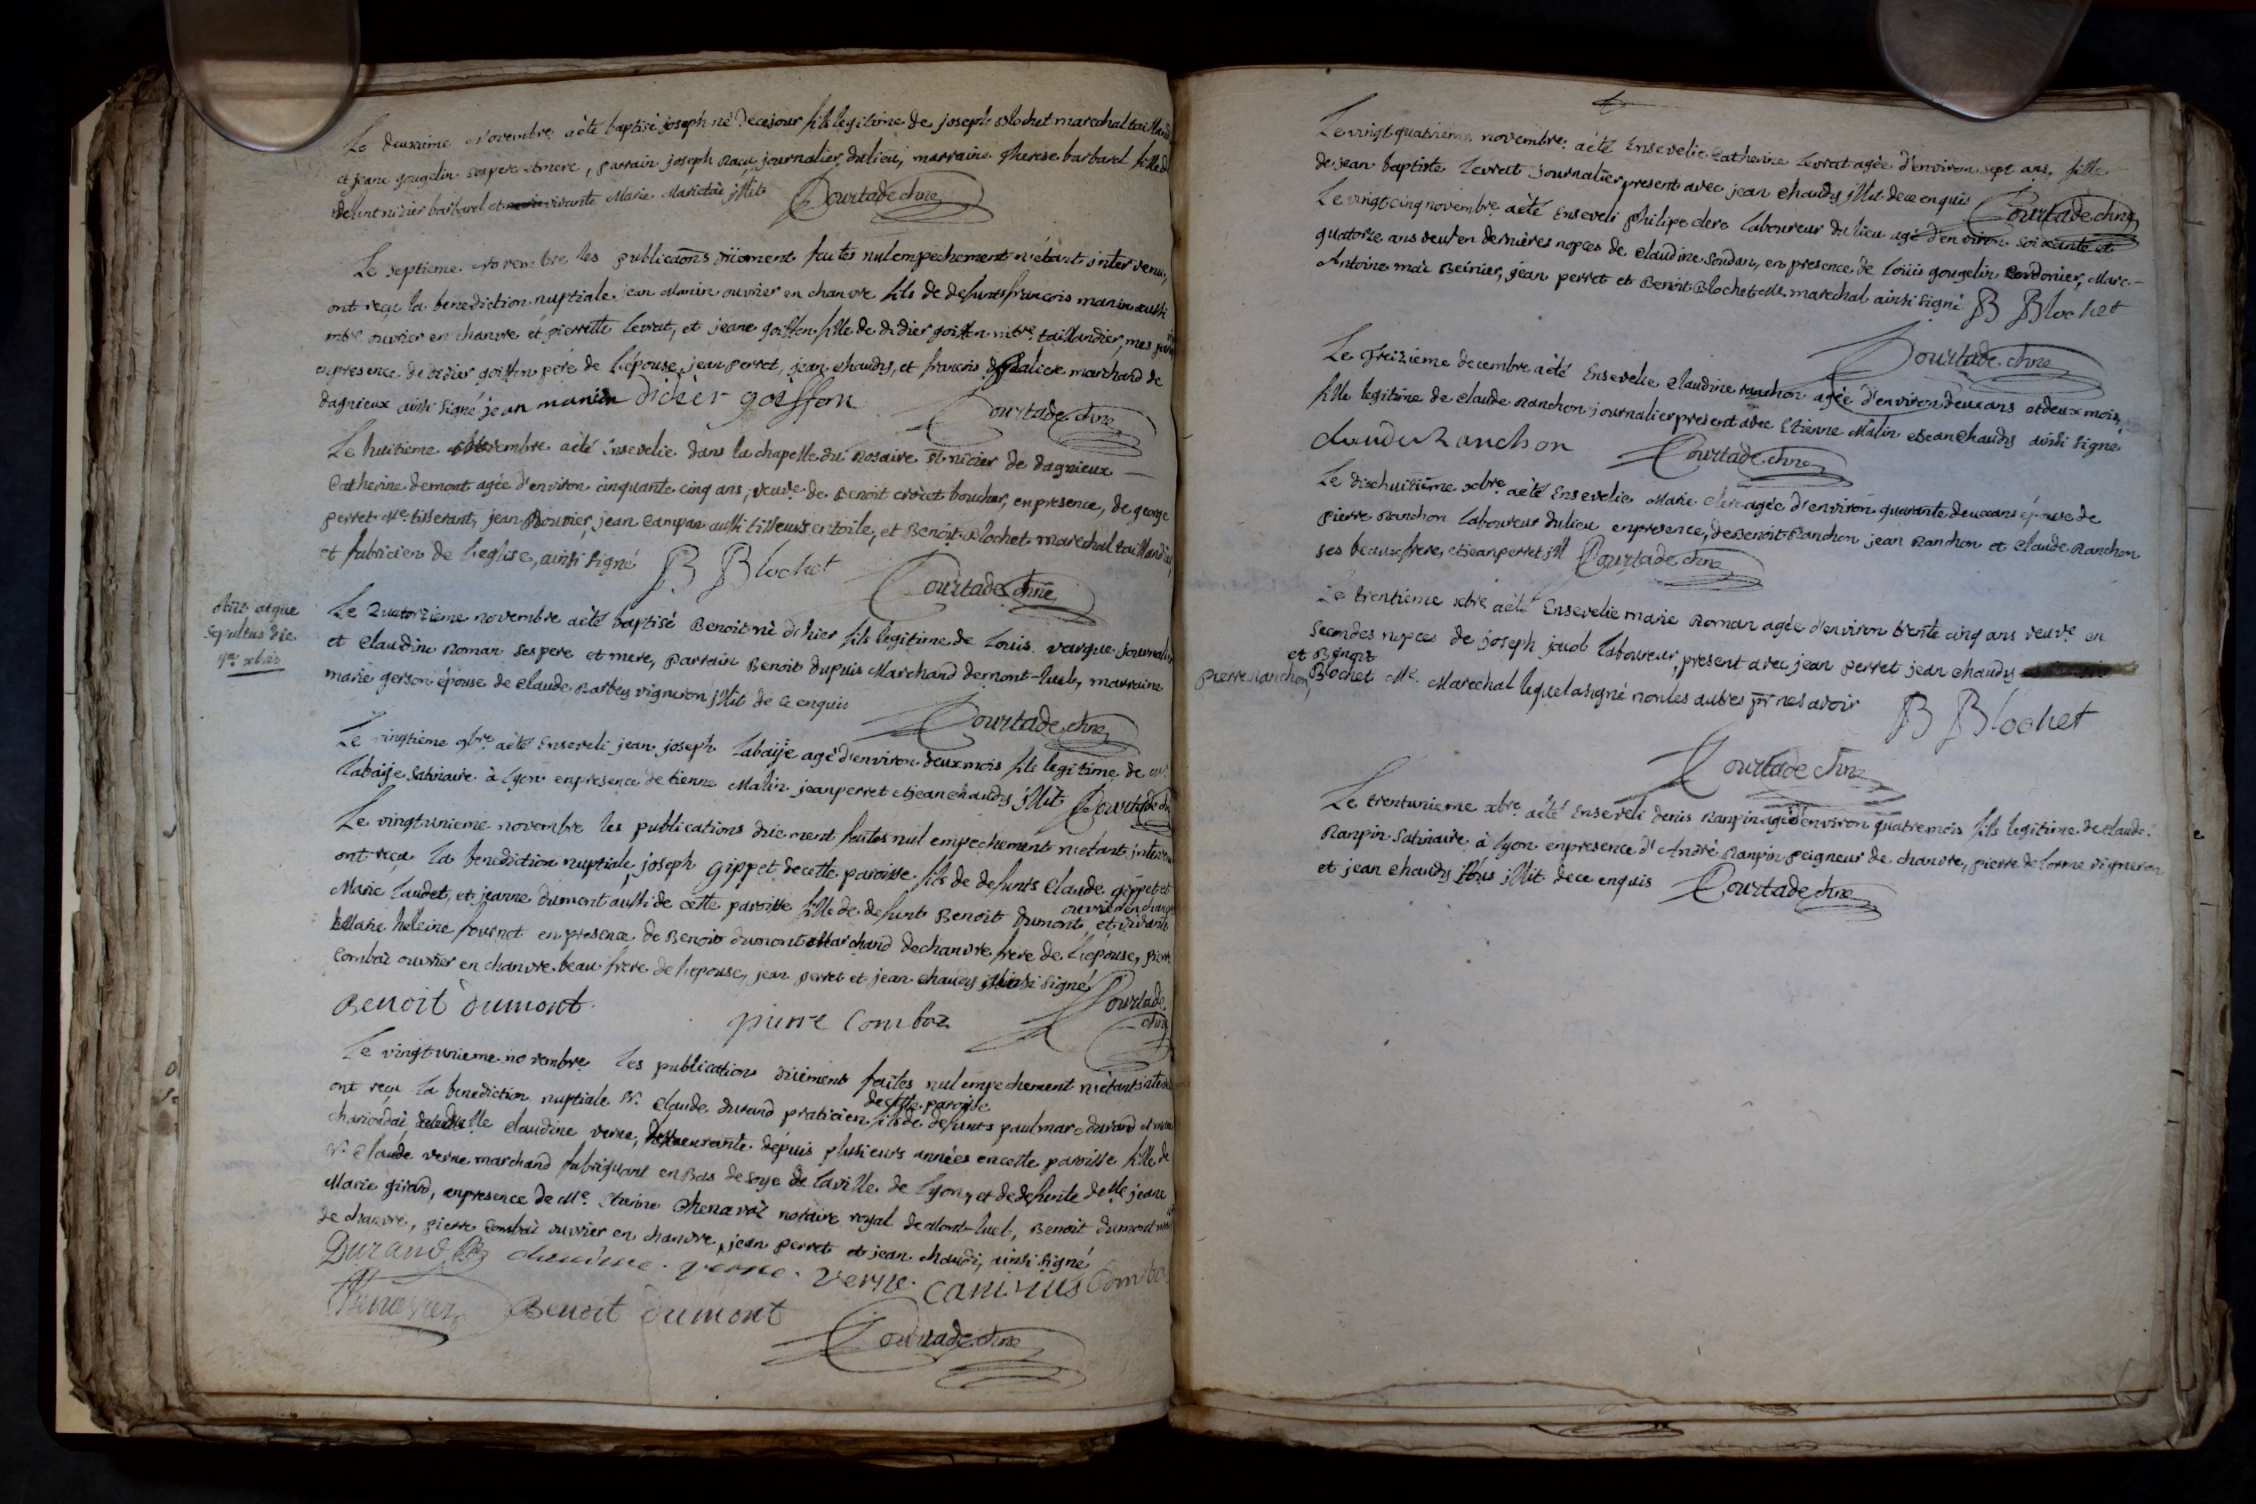 Le deuxieme Novembre a été baptisé joseph né de ce jour fils legitime de joseph Blochet marechal tailland
et jeane gougelin ses pere et mere, parrain joseph journalier du lieu, marraine Therese barbarel fille de
defunt nizier barbarel et vivante Marie illit Courtade chne
Le septieme Novembre les publications düement faites nul empechement n'étant intervenu,
ont reçu la benediction nuptiale jean Manin ouvrier en chanvre fils de defunts françois manin aussi
ouvrier en chanvre et pierrette levrat, et jeane goiffon fille de didier goiffon taillandier, mes
en presence de didier goiffon pére de l'épouse, jean perret, jean chaudy, et françois marchand de
dagnieux ainsi signé jean manin didier goiffon Courtade chne
Le huitieme Novembre a été ensevelie dans la chapelle du Rosaire St nizier de dagnieux
Catherine demont agée d'environ cinquante cinq ans, veuve de Benoit boucher, en presence, de george
perret Me tisserant, jean jean Campan aussi tisseurs en toile, et Benoit Blochet marechal tailland
et fabricien de l'eglise, ainsi signé B Blochet
Courtade chne
obiit atque
sepultus die
xbris
Le Quatorzieme novembre a été baptisé Benoit né d'hier fils legitime de Louis vargue journalier
et Claudine Roman ses pere et mere, parrain Benoit dupuis Marchand de mont-luel, marraine
marie gerson épouse de claude Barbey vigneron illit de ce enquis
Courtade chne
Le vingtieme 9bre a été enseveli jean joseph Labaije agé d'environ deux mois fils legitime de
Labaije satinaire à Lyon en presence detienne Malin jean perret et jean chaudy illit Courtade ch
Le vingtunieme novembre les publications düement faites nul empechement n'étant interven
ont reçu la benediction nuptiale, joseph gippet de cette paroisse fils de defunts Claude gippet et
Marie Laudet, et jeanne dumont aussi de cette paroisse fille de defunt Benoit dumont ouvrier en chanvre, et vivante
Marie heleine fournet en presence de Benoit dumont Marchand de chanvre frere de l'épouse, pierre
Combaz ouvrier en chanvre beau frere de l'epouse, jean perret et jean chaudy ainsi signé
Courtade
chne
Benoit dumont
pierre Combaz
Le vingtunieme novembre les publications düement faites nul empechement n'étant inter
ont reçu la benediction nuptiale Sr. Claude durand praticien de cette paroisse fils de defunts paul marc durand et
delle Claudine verne, demeurante depuis plusieurs années en cette paroisse fille de
Sr. Claude verne marchand fabriquant en Bas de soye de la ville de Lyon, et de defunte delle jeane
Marie girard, en presence de Me. Etienne Chenavaz notaire royal de Mont-luel, Benoit dumont md
de chanvre, pierre Combaz ouvrier en chanvre, jean perret et jean chaudi, ainsi signé
Durand claudine verne verne Comba
Chenavaz Benoit dumont
Courtade chne
Le vingt quatrieme novembre a été Ensevelie Catherine Levrat agée d'environ sept ans, fille
de jean baptiste Levrat journalier, present avec jean chaudy illit de ce enquis
Courtade chne
Le vingt cinq novembre a été Enseveli philipe clerc laboureur du lieu agé d'environ soixante et
quatorze ans veuf en dernieres nopces de Claudine sondan, en presence de Loüis gougelin Cordonier, Marc-
Antoine mai Beinier, jean perret et Benoit Blochet Me. marechal ainsi signé B Blochet
Courtade chne
Le treizieme decembre a été Ensevelie Claudine ranchon agée d'environ deux ans et deux mois
fille legitime de claude Ranchon journalier present avec Etienne Malin et jean chaudy ainsi signé
claude Ranchon Courtade chne
Le dixhuitième xbre a été Ensevelie Marie clerc agée d'environ quarante deux ans épouse de
pierre Ranchon laboureur du lieu en presence, de Benoit Ranchon jean Ranchon et Claude Ranchon
ses beaux frere, et jean perret ill Courtade chne
Le trentieme xbre a été Ensevelie marie Roman agée d'environ trente cinq ans veuve en
secondes nopces de joseph jacob laboureur, present avec jean perret jean chaudy
et Benoit
pierre Ranchon, Blochet Me. Marechal lequel a signé non les autres pr ne savoir
B Blochet
Courtade chne
Le trentunieme xbre a été Enseveli denis Ranpin agé d'environ quatre mois fils legitime de claude
Ranpin satinaire à Lyon en presence d'André Ranpin peigneur de chanvre, pierre de lorme vigneron
et jean chaudy illit de ce enquis Courtade chne